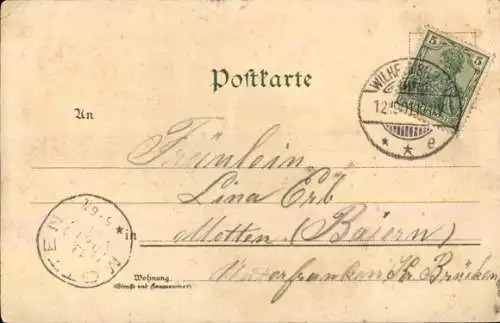 5 5
WILHELMSHAVEN
Postkarte
12.10.01
An
* * e
Fräulein
Lina Erb
in Motten (Baiern)
MOTTEN
Wohnung
(Straße und Hausnummer)
Unterfranken Kr Brücken